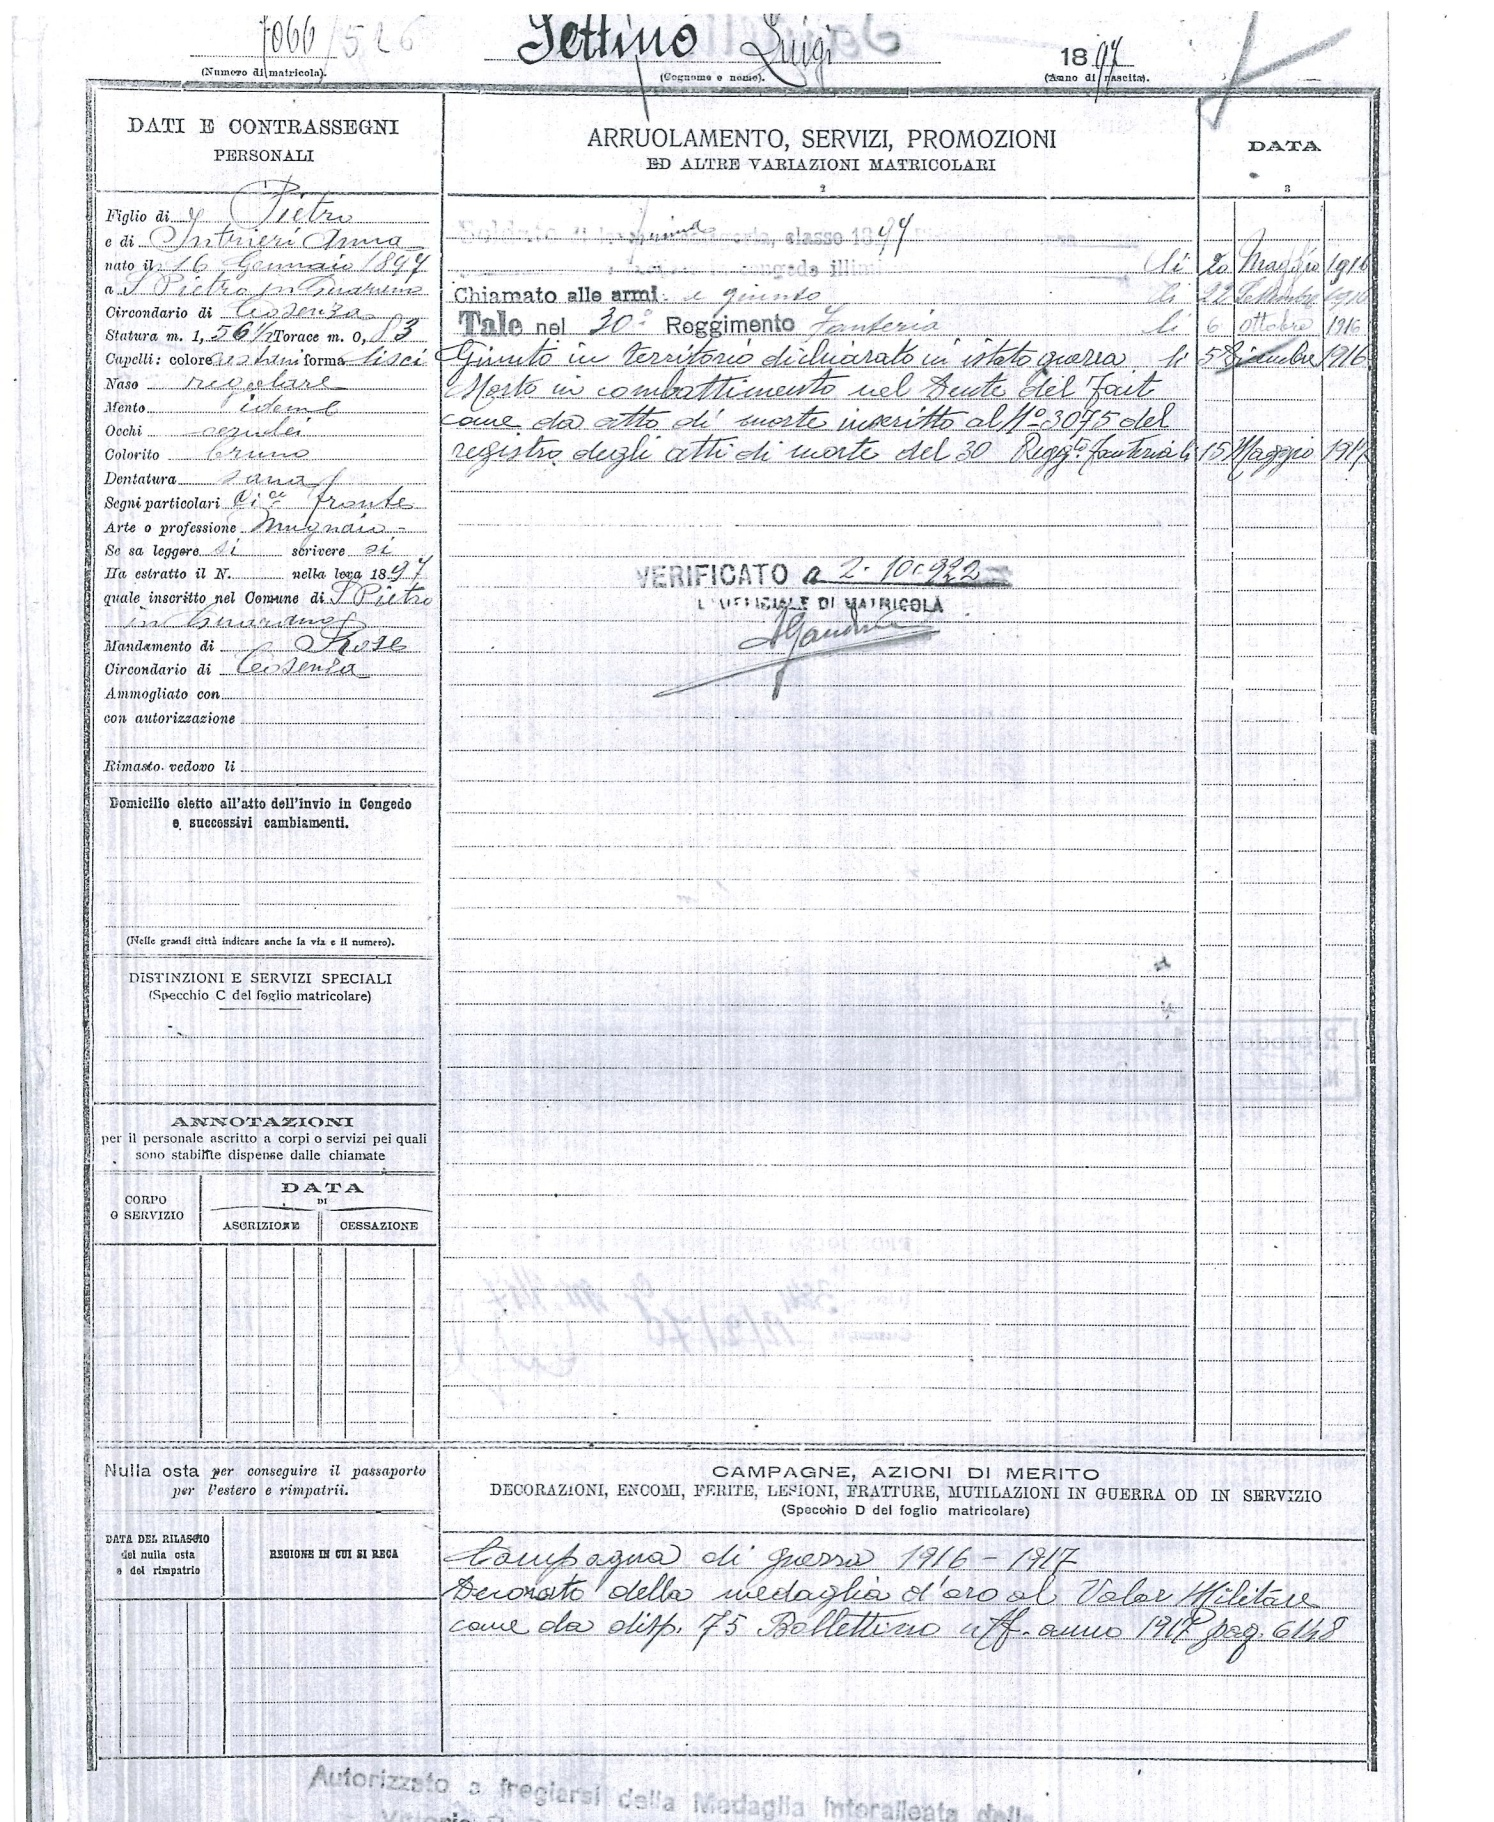 7066/526 Settino Luigi 1897
(Numero di matricola). (Cognome e nome). (Anno di nascita).
DATI E CONTRASSEGNI
PERSONALI
Figlio di Pietro
e di Intrieri Anna
nato il 16 Gennaio 1897
a S Pietro in Guarano
Circondario di Cosenza
Statura m. 1, 56 1/2 Torace m. 0, 83
Capelli: colore castani forma lisci
Naso regolare
Mento idem
Occhi cerulei
Colorito bruno
Dentatura sana
Segni particolari Cice fronte
Arte o professione Mugnaio
Se sa leggere si scrivere si
Ha estratto il N. nella leva 1897
quale inscritto nel Comune di S Pietro
in Guarano
Mandamento di Rose
Circondario di Cosenza
Ammogliato con
con autorizzazione
Rimasto vedovo li
Domicilio eletto all'atto dell'invio in Congedo
e successivi cambiamenti.
(Nelle grandi città indicare anche la via e il numero).
DISTINZIONI E SERVIZI SPECIALI
(Specchio C del foglio matricolare)
ANNOTAZIONI
per il personale ascritto a corpi o servizi pei quali
sono stabilite dispense dalle chiamate
CORPO
O SERVIZIO
DATA
DI
ASCRIZIONE CESSAZIONE
Nulla osta per conseguire il passaporto
per l'estero e rimpatrii.
DATA DEL RILASCIO
del nulla osta
e del rimpatrio
REGIONE IN CUI SI RECA
ARRUOLAMENTO, SERVIZI, PROMOZIONI
ED ALTRE VARIAZIONI MATRICOLARI
2
DATA
3
Soldato di prima categoria, classe 1897
in congedo illim li 20 Maggio 1916
Chiamato alle armi e giunto li 22 Settembre 1916
Tale nel 30° Reggimento Fanteria li 6 ottobre 1916
Giunto in territorio dichiarato in istato guerra li 5 Dicembre 1916
Morto in combattimento nel Dente del Fait
come da atto di morte inscritto al N° 3075 del
registro degli atti di morte del 30 Reggto fanteria li 15 Maggio 1917
VERIFICATO a 2-10-922
L'UFFICIALE DI MATRICOLA
CAMPAGNE, AZIONI DI MERITO
DECORAZIONI, ENCOMI, FERITE, LESIONI, FRATTURE, MUTILAZIONI IN GUERRA OD IN SERVIZIO
(Specchio D del foglio matricolare)
Campagna di guerra 1916 - 1917
Decorato della medaglia d'oro al Valor Militare
come da disp. 75 Bollettino uff. anno 1917 pag. 6148
Autorizzato a fregiarsi della Medaglia Interalleata della